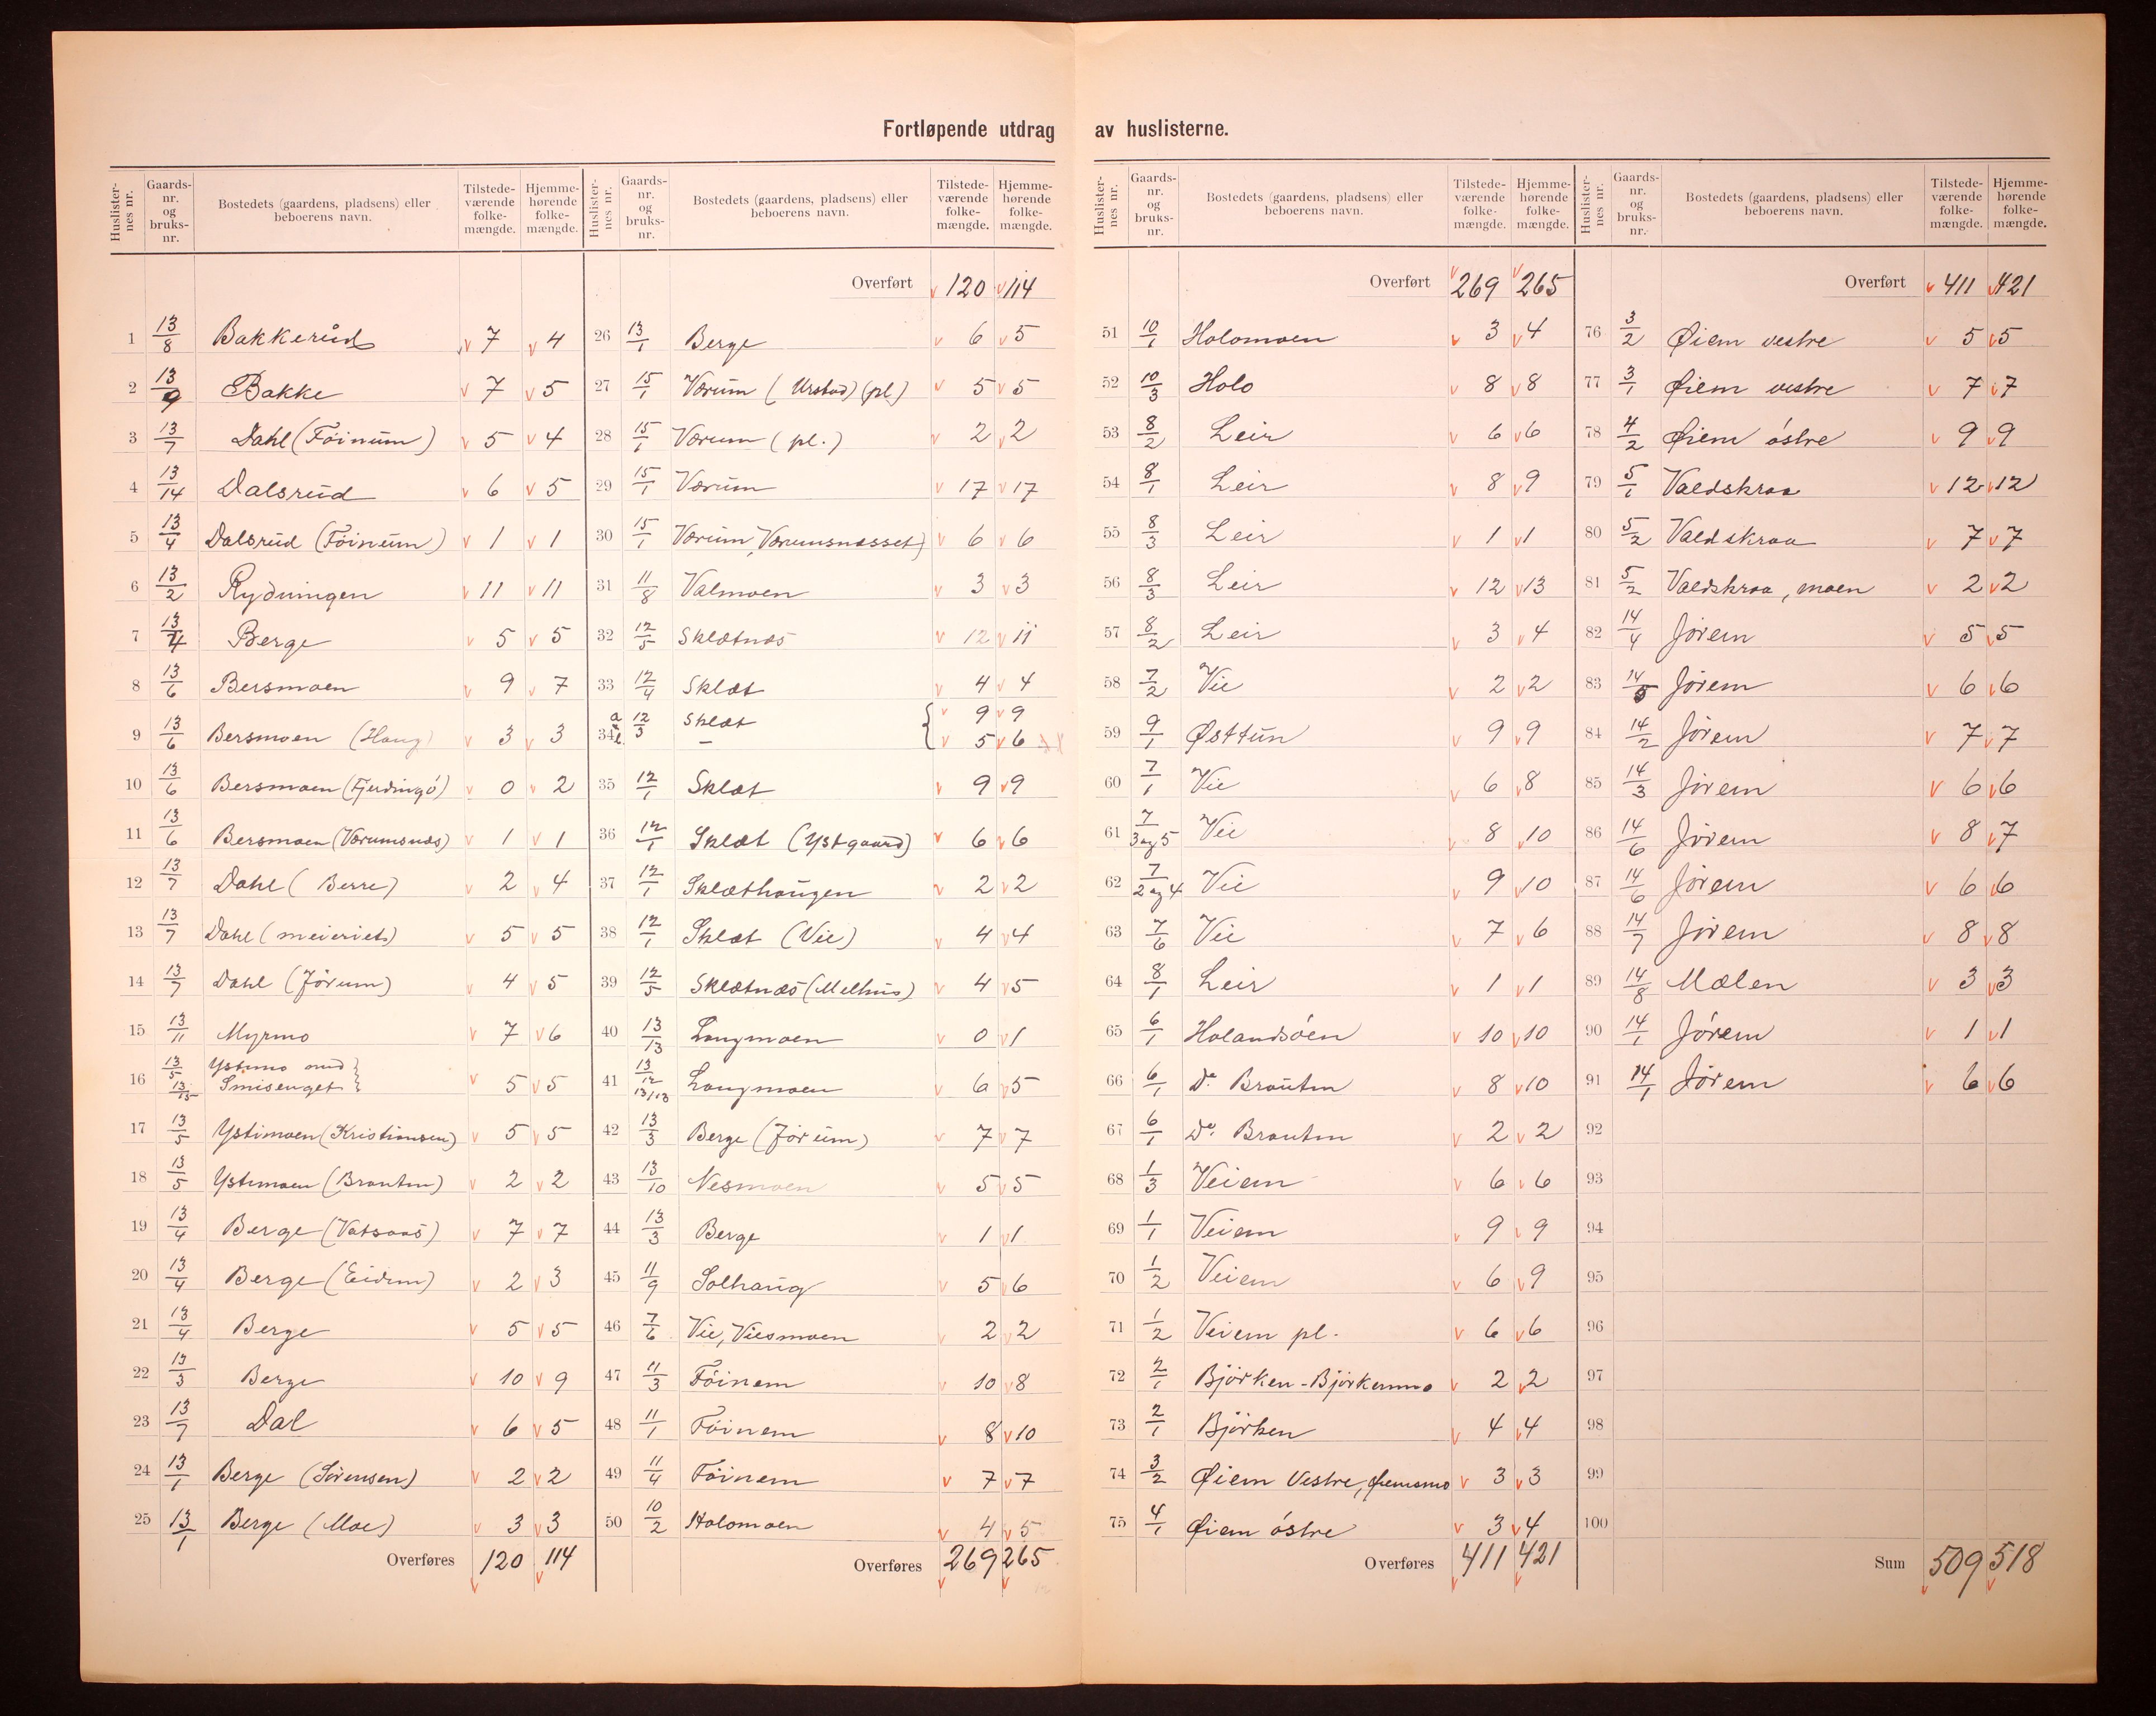 Fortløpende utdrag av huslisterne.
Huslisternes nr. Gaards-nr. og bruks-nr. Bostedets (gaardens, pladsens) eller beboerens navn. Tilstedeværende folkemængde. Hjemmehørende folkemængde.
1 13/8 Bakkerud 7 4
2 13/9 Bakke 7 5
3 13/7 Dahl (Föinum) 5 4
4 13/14 Dalsrud 6 5
5 13/4 Dalsrud (Föinum) 1 1
6 13/2 Rydningen 11 11
7 13/4 Berge 5 5
8 13/6 Bersmoen 9 7
9 13/6 Bersmoen (Haug) 3 3
10 13/6 Bersmoen (Fjerdingö) 0 2
11 13/6 Bersmoen (Værumsnæs) 1 1
12 13/7 Dahl (Berre) 2 4
13 13/7 Dahl (meieriet) 5 5
14 13/7 Dahl (Jörum) 4 5
15 13/11 Myrmo 7 6
16 13/5 Ystmo med
13/15 Smisenget } 5 5
17 13/5 Ystimoen (Kristiansen) 5 5
18 13/5 Ystimoen (Brauten) 2 2
19 13/4 Berge (Vatsaas) 7 7
20 13/4 Berge (Eidum) 2 3
21 13/4 Berge 5 5
22 13/3 Berge 10 9
23 13/7 Dal 6 5
24 13/1 Berge (Sörensen) 2 2
25 13/1 Berge (Moe) 3 3
Overføres 120 114
Huslisternes nr. Gaards-nr. og bruks-nr. Bostedets (gaardens, pladsens) eller beboerens navn. Tilstedeværende folkemængde. Hjemmehørende folkemængde.
Overført 120 114
26 13/1 Berge 6 5
27 15/1 Værum (Urstad) (pl.) 5 5
28 15/1 Værum (pl.) 2 2
29 15/1 Værum 17 17
30 15/1 Værum, Værumsnesset) 6 6
31 11/8 Valmoen 3 3
32 12/5 Sklætnæs 12 11
33 12/4 Sklæt 4 4
34 a 12/3 Sklæt { 9 9
b — 5 6
35 12/1 Sklæt 9 9
36 12/1 Sklæt (Ystgaard) 6 6
37 12/1 Sklæthaugen 2 2
38 12/1 Sklæt (Vie) 4 4
39 12/5 Sklætnæs (Melhus) 4 5
40 13/13 Langmoen 0 1
41 13/12 13/13 Langmoen 6 5
42 13/3 Berge (Jörum) 7 7
43 13/10 Nesmoen 5 5
44 13/3 Berge 1 1
45 11/9 Solhaug 5 6
46 7/6 Vie, Viesmoen 2 2
47 11/3 Föinem 10 8
48 11/1 Föinem 8 10
49 11/4 Föinem 7 7
50 10/2 Holomoen 4 5
Overføres 269 265
Huslisternes nr. Gaards-nr. og bruks-nr. Bostedets (gaardens, pladsens) eller beboerens navn. Tilstedeværende folkemængde. Hjemmehørende folkemængde.
Overført 269 265
51 10/1 Holomoen 3 4
52 10/3 Holo 8 8
53 8/2 Leir 6 6
54 8/1 Leir 8 9
55 8/3 Leir 1 1
56 8/3 Leir 12 13
57 8/2 Leir 3 4
58 7/2 Vie 2 2
59 9/1 Østtun 9 9
60 7/1 Vie 6 8
61 7/3 og 5 Vie 8 10
62 7/2 og 4 Vie 9 10
63 7/6 Vie 7 6
64 8/1 Leir 1 1
65 6/1 Holandsöen 10 10
66 6/1 Do Brauten 8 10
67 6/1 Do Brauten 2 2
68 1/3 Veiem 6 6
69 1/1 Veiem 9 9
70 1/2 Veiem 6 9
71 1/2 Veiem pl. 6 6
72 2/1 Björken - Björkenmo 2 2
73 2/1 Björken 4 4
74 3/2 Øiem Vestre, Øiemsmo 3 3
75 4/1 Øiem östre 3 4
Overføres 411 421
Huslisternes nr. Gaards-nr. og bruks-nr. Bostedets (gaardens, pladsens) eller beboerens navn. Tilstedeværende folkemængde. Hjemmehørende folkemængde.
Overført 411 421
76 3/2 Øiem vestre 5 5
77 3/1 Øiem vestre 7 7
78 4/2 Øiem östre 9 9
79 5/1 Valdskraa 12 12
80 5/2 Valdskraa 7 7
81 5/2 Valdskraa, moen 2 2
82 14/4 Jörem 5 5
83 14/5 Jörem 6 6
84 14/2 Jörem 7 7
85 14/3 Jörem 6 6
86 14/6 Jörem 8 7
87 14/6 Jörem 6 6
88 14/7 Jörem 8 8
89 14/8 Mælen 3 3
90 14/1 Jörem 1 1
91 14/1 Jörem 6 6
92
93
94
95
96
97
98
99
100
Sum 509 518